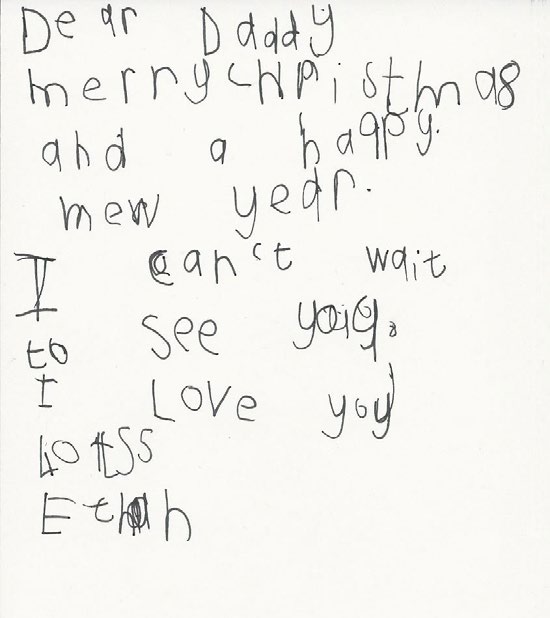 Dear Daddy
merrychristmas
and a happy.
mew year.
I can't wait
to see you.
I Love you
lotss
Ethan